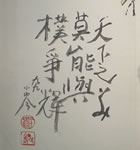 天下之美
莫能與
樸爭輝